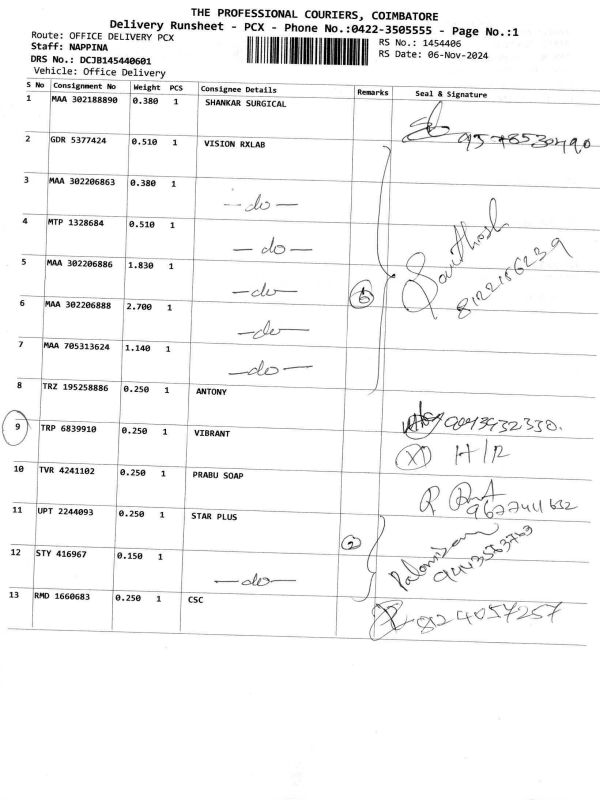 THE PROFESSIONAL COURIERS, COIMBATORE
Delivery Runsheet - PCX - Phone No.:0422-3505555 - Page No.:1
Route: OFFICE DELIVERY PCX
RS No.: 1454406
Staff: NAPPINA
RS Date: 06-Nov-2024
DRS No.: DCJB145440601
Vehicle: Office Delivery
S No Consignment No Weight PCS Consignee Details Remarks Seal & Signature
1 MAA 302188890 0.380 1 SHANKAR SURGICAL
9578530490
2 GDR 5377424 0.510 1 VISION RXLAB
3 MAA 302206863 0.380 1 -do-
4 MTP 1328684 0.510 1 -do-
5 MAA 302206886 1.830 1 -do- 6 Santhosh 8122156239
6 MAA 302206888 2.700 1 -do-
7 MAA 705313624 1.140 1 -do-
8 TRZ 195258886 0.250 1 ANTONY
9043932330.
9 TRP 6839910 0.250 1 VIBRANT H/R
10 TVR 4241102 0.250 1 PRABU SOAP
11 UPT 2244093 0.250 1 STAR PLUS 2
12 STY 416967 0.150 1 -do- 9443563763
13 RMD 1660683 0.250 1 CSC 8124057257